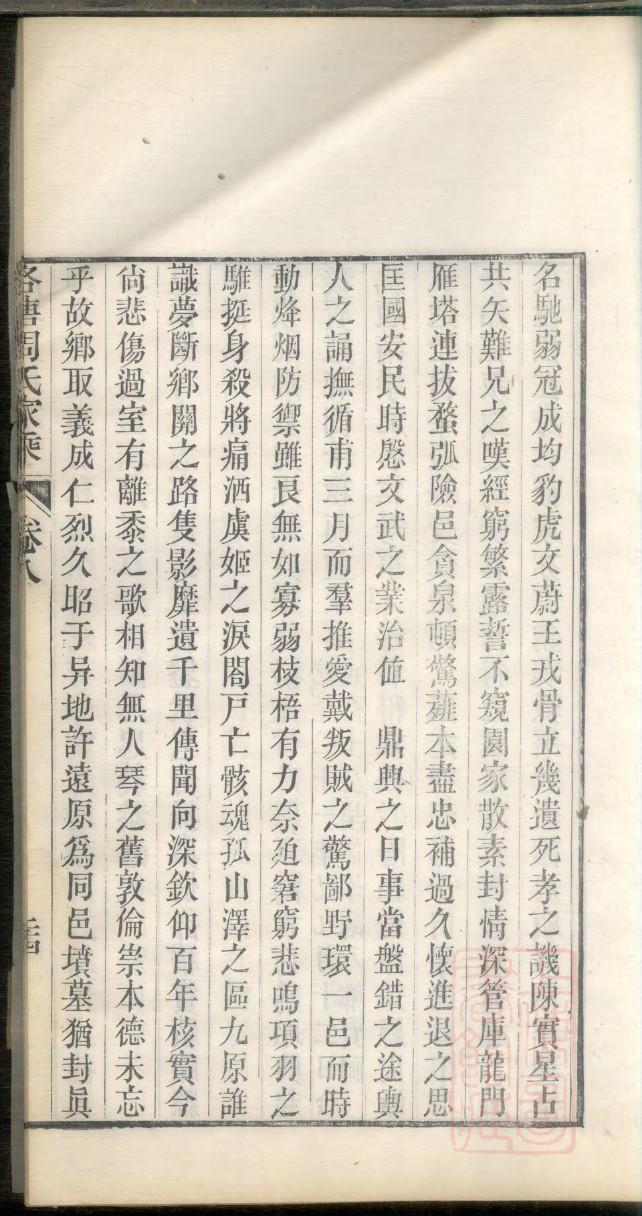 名馳弱冠成均豹虎文蔚王戎骨立幾遺死孝之譏陳實星占
共矢難兄之嘆經窮繁露誓不窺園家散素封情深管庫龍門
雁塔連拔蝥弧險邑貪泉頓驚薤本盡忠補過久懷進退之思
匡國安民時慇文武之業治值　鼎興之日事當盤錯之途輿
人之誦撫循甫三月而羣推愛戴叛賊之驚鄙野環一邑而時
動烽烟防禦雖良無如寡弱枝梧有力奈廹窘窮悲鳴項羽之
騅挺身殺將痛洒虞姬之淚閤戸亡骸魂孤山澤之區九原誰
識夢斷鄉關之路隻影靡遺千里傳聞向深欽仰百年核實今
尙悲傷過室有離黍之歌相知無人琴之舊敦倫崇本德未忘
乎故鄉取義成仁烈久昭于异地許遠原爲同邑墳墓猶封眞
洛塘周氏家乘　卷八